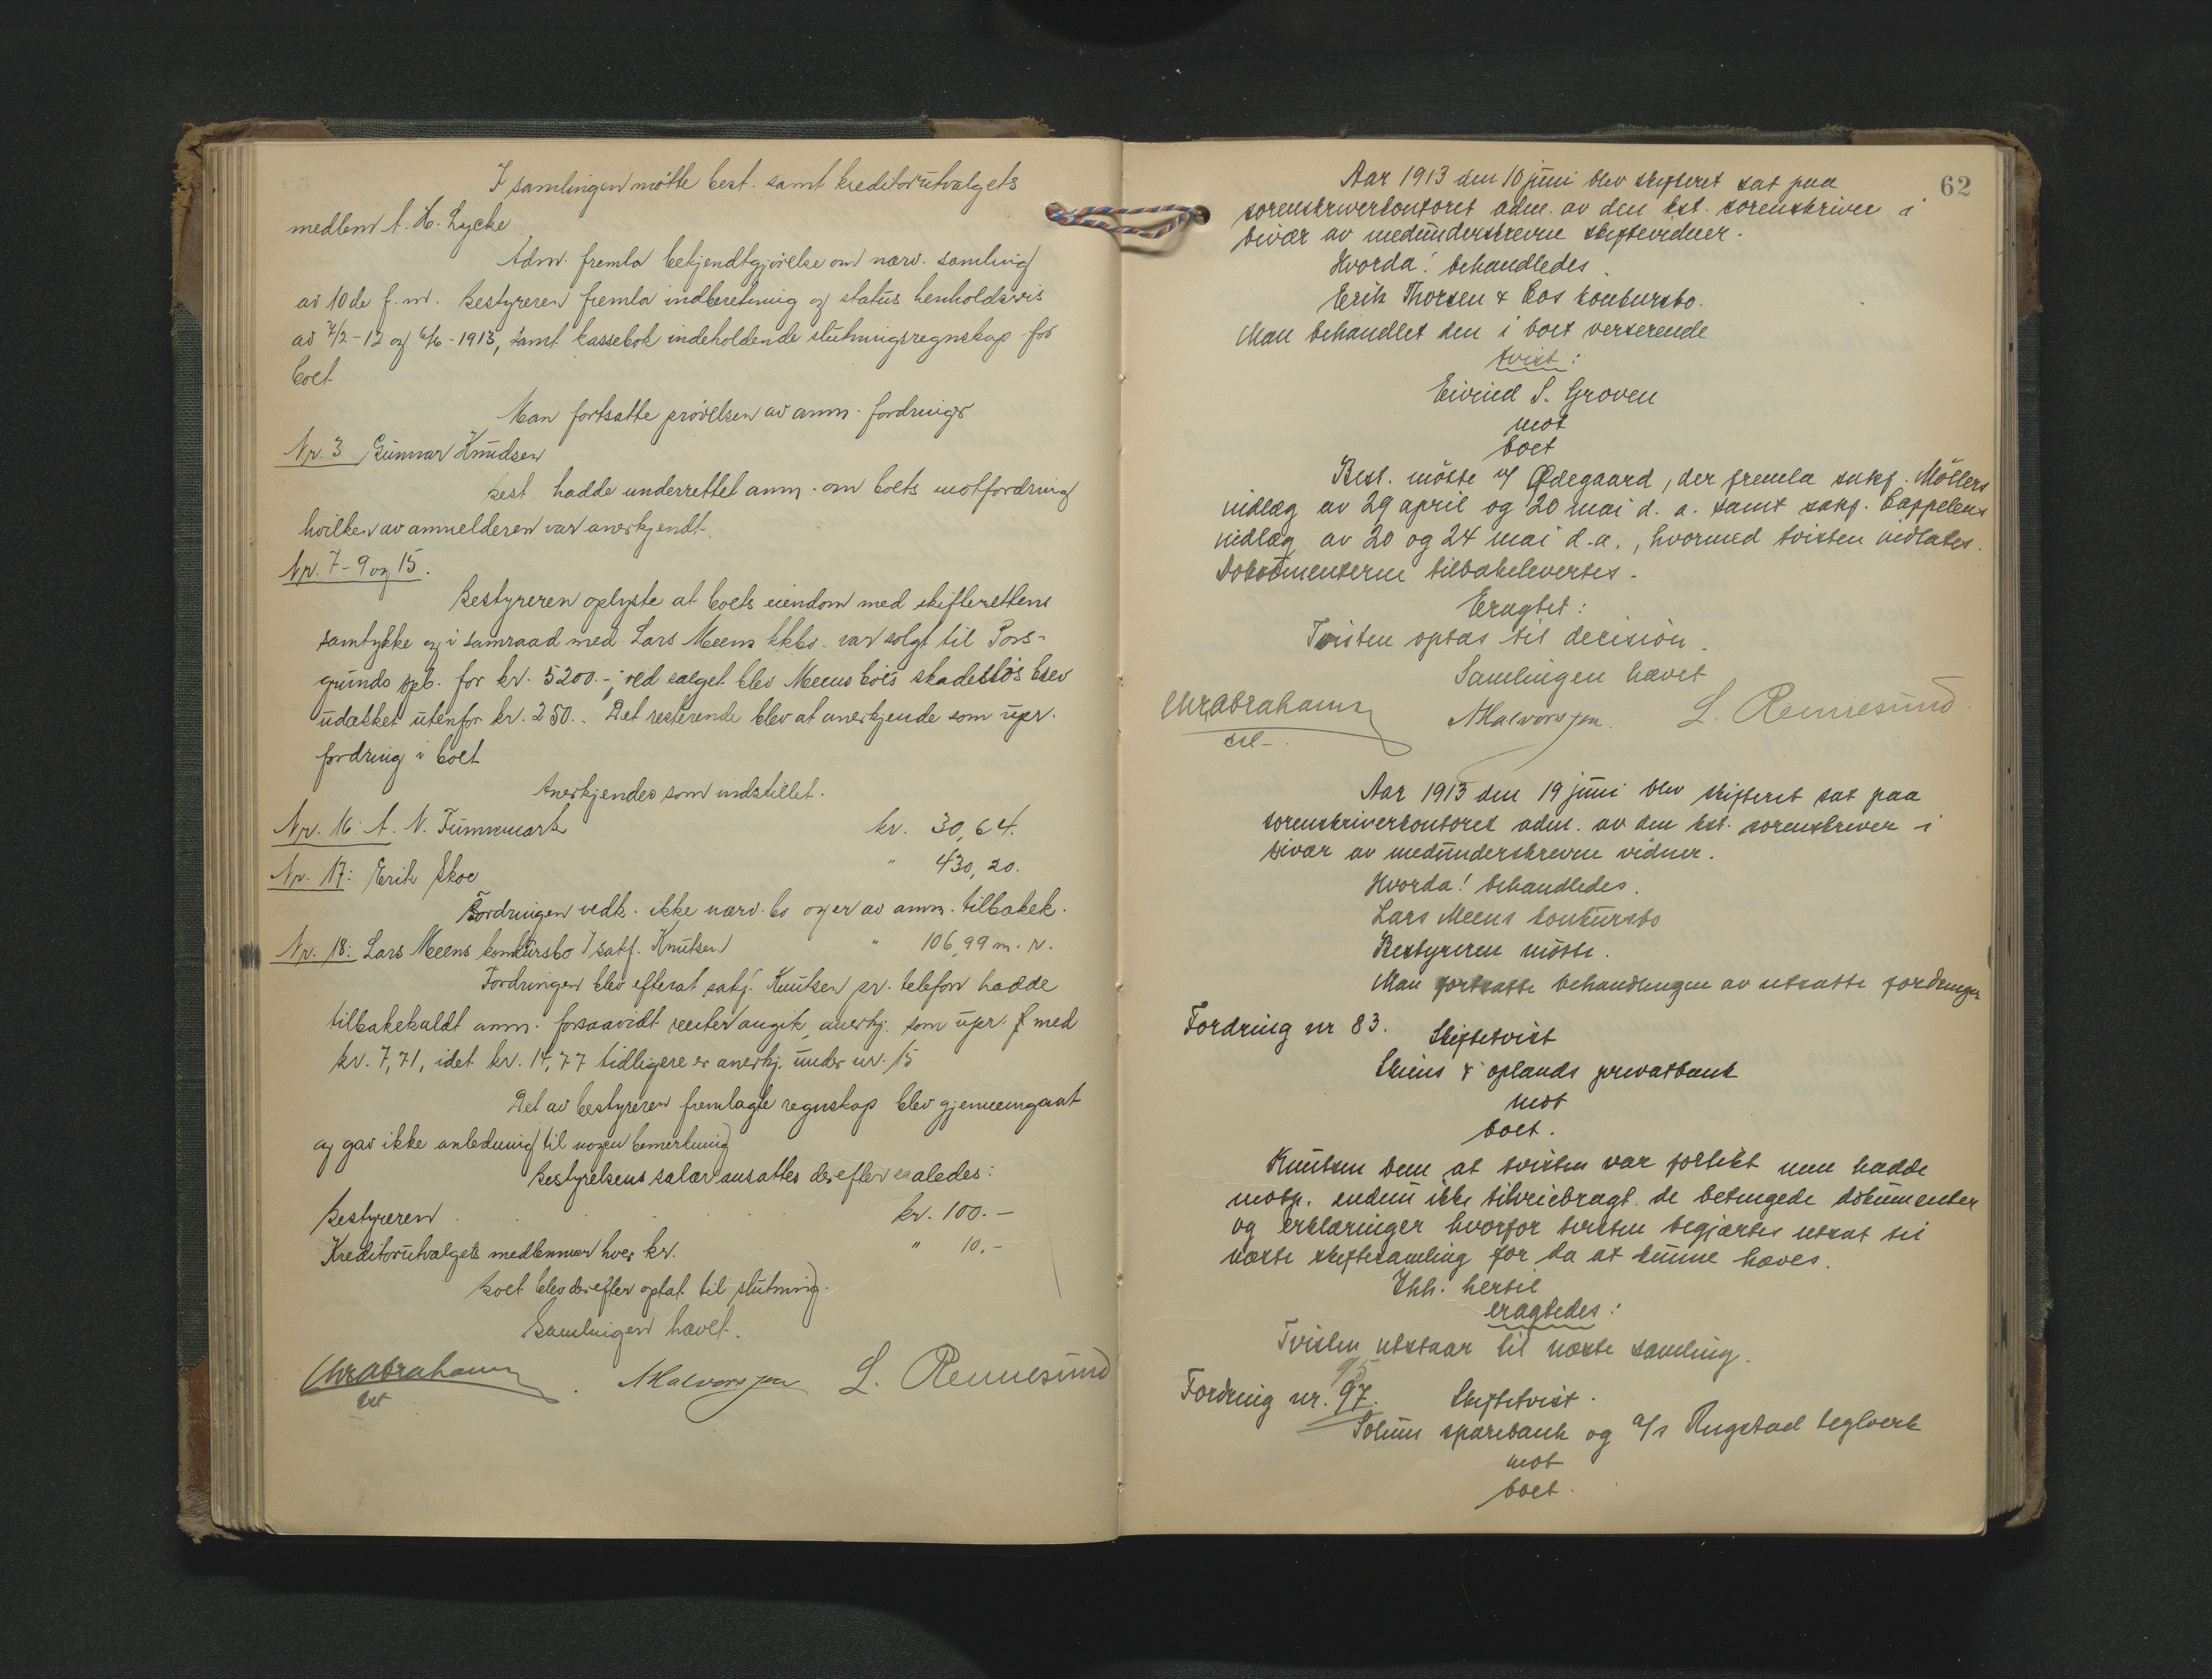 I samlingen møtte best. samt kreditorutvalgets
medlem A. H. Lycke
Adm. fremla bekjendtgjørelse om nærv. samling
av 10de f.m. Bestyreren fremla indberetning og status henholdsvis
av 7/2-12 og 6/6-1913, samt kassebok indeholdende slutningsregnskap for
boet
Man fortsatte prøvelsen av anm. fordringer
Nr. 3 Gunnar Knudsen
Best. hadde underrettet anm. om boets motfordring
hvilken av anmelderen var anerkjendt.
Nr. 7-9 og 15.
Bestyreren oplyste at boets eiendom med skifterettens
samtykke og i samraad med Lars Meens kkbo. var solgt til Pors-
grunds spb. for kr. 5200.-; ved salget blev Meens bo's skadesløsbrev
udækket utenfor kr. 250.- Det resterende blev at anerkjende som upr.
fordring i boet
Anerkjendes som indstillet.
Nr. 16: A. N. Tummmark kr. 30,64.
Nr. 17: Erik Skoe " 430,20.
Fordringen vedk. ikke nærv. bo og er av anm. tilbakek.
Nr. 18: Lars Meens konkursbo / sakf. Knutsen " 106,99 m. r.
Fordringen blev efterat sakf. Knutsen pr. telefon hadde
tilbakekaldt anm. forsaavidt renter angik anerkj. som upr. f med
kr. 7,71, idet kr. 14,77 tidligere er anerkj. under nr. 15
Det av bestyreren fremlagte regnskap blev gjennemgaat
og gav ikke anledning til nogen bemerkning
Bestyrelsens salær ansattes derefter saaledes:
Bestyreren . . . . . kr. 100.-
Kreditorutvalgets medlemmer hver kr. " 10.-
Boet blev derefter optat til slutning.
Samlingen hævet.
Chr Abrahams
cst
N Halvorsen L. Rennesund
62
Aar 1913 den 10 juni blev skifteret sat paa
sorenskriverkontoret adm. av den kst. sorenskriver i
bivær av medunderskrevne skiftevidner.
Hvorda! behandledes.
Erik Thorsen & Cos konkursbo.
Man behandlet den i boet verserende
tvist:
Eivind S. Groven
mot
boet
Best. møtte v/ Ødegaard, der fremla sakf. Møllers
indlæg av 29 april og 20 mai d. a. samt sakf. Cappelens
indlæg av 20 og 24 mai d.a., hvormed tvisten indlates.
Dokumenterne tilbakelevertes.
Eragtet:
Tvisten optas til decision.
Samlingen hævet
Chr Abrahams
cst-.
N Halvorsen. L. Rennesund.
Aar 1913 den 19 juni blev skifteret sat paa
sorenskriverkontoret adm. av den kst. sorenskriver i
bivær av medunderskrevne vidner.
Hvorda! behandledes.
Lars Meens konkursbo
Bestyreren møtte.
Man fortsatte behandlingen av utsatte fordringer
Fordring nr 83. Skiftetvist
Skiens & oplands privatbank
mot
boet.
Knutsen bem. at tvisten var forlikt men hadde
motp. endnu ikke tilveiebragt de betingede dokumenter
og erklæringer hvorfor tvisten begjærtes utsat til
næste skiftesamling for da at kunne hæves.
Ihh. hertil
eragtedes:
Tvisten utstaar til næste samling.
95
Fordring nr. 97. Skiftetvist.
Solum sparebank og A/s Rugstad teglverk
mot
boet.